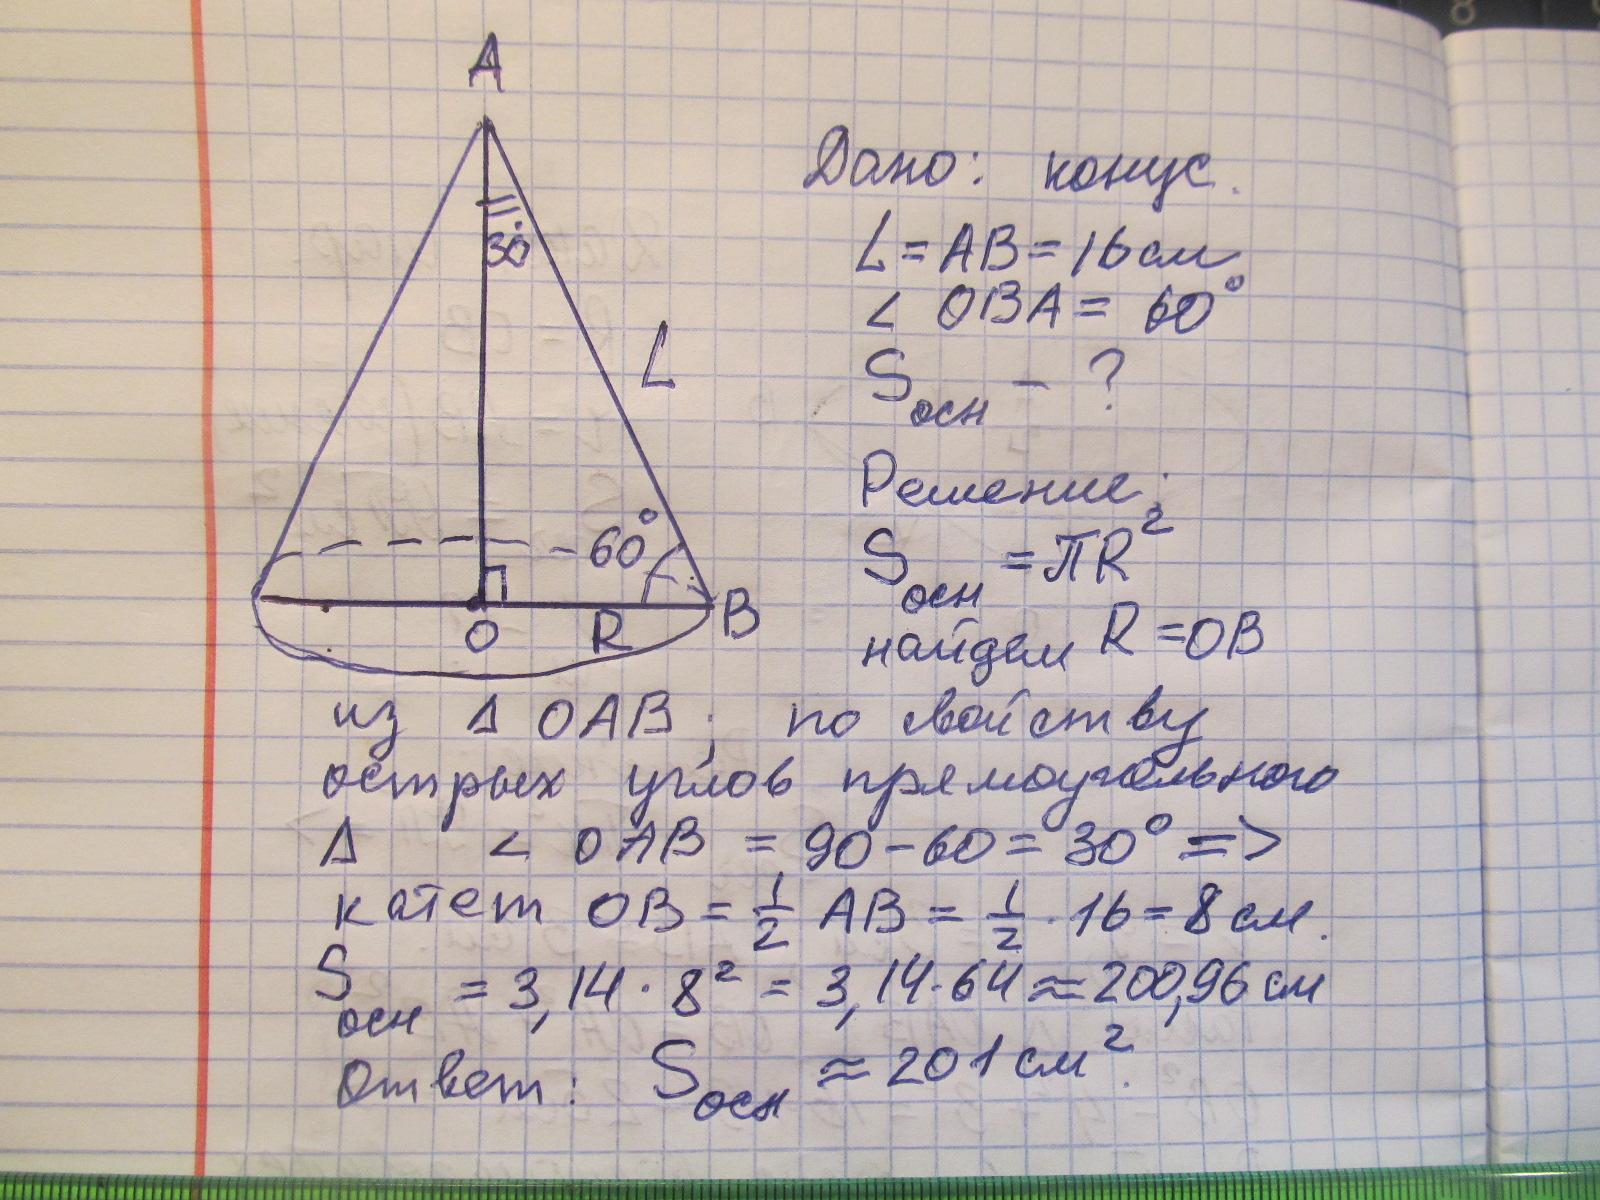 A
30°
L
60°
O R B
Дано: конус.
L = AB = 16 см
< OBA = 60°
Sосн - ?
Решение:
Sосн = πR²
найдем R = OB
из Δ OAB; по свойству
острых углов прямоугольного
Δ < OAB = 90 - 60 = 30° =>
катет OB = 1/2 AB = 1/2 · 16 = 8 см.
Sосн = 3,14 · 8² = 3,14 · 64 ≈ 200,96 см
Ответ: Sосн ≈ 201 см².